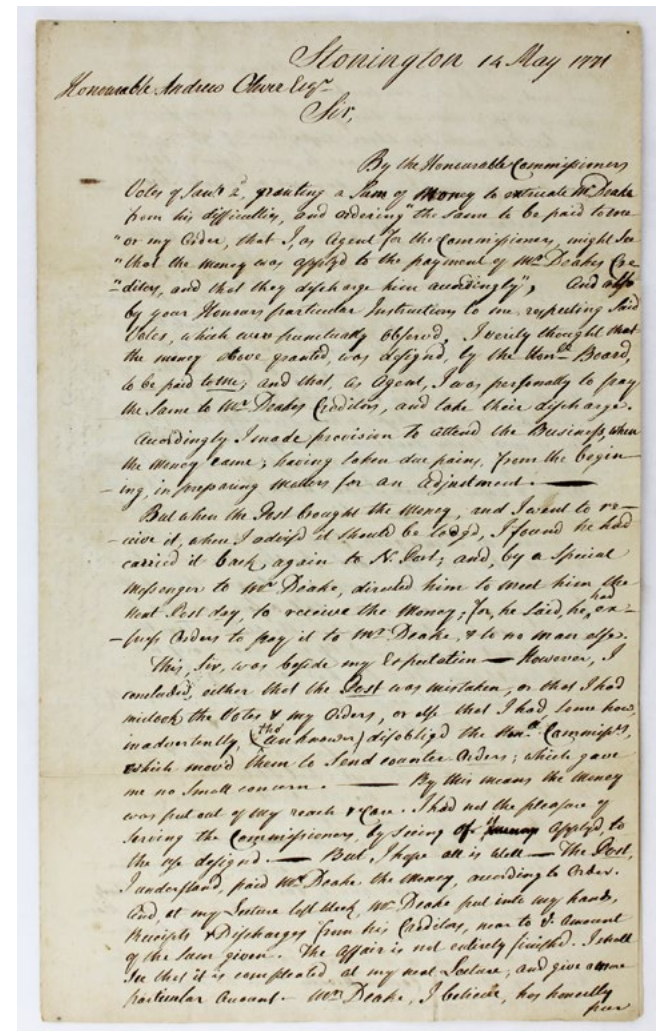 Stonington 14 May 1771
Honourable Andrew Oliver Esqr
Sir,
By the Honourable Commissioners
Votes of Janr 2, granting a Sum of Money to extricate Mr Deake
from his difficulties, and ordering "the same to be paid to me
"or my Order, that I, as Agent for the Commissioners, might See
"that the money was apply'd to the payment of Mr Deakes Cre
"ditors, and that they discharge him accordingly"; And also
by your Honours particular Instructions to me, respecting Said
Votes, which were punctually observed, I verily thought that
the money above granted, was designed, by the Honble Board,
to be paid to me; and that, as Agent, I was personally to pay
the Same to Mr Deakes Creditors, and take their discharge.
Accordingly I made provision to attend the Business, when
the money came; having taken due pains, from the begin-
-ing, in preparing matters for an adjustment. —
But when the Post brought the money, and I went to re-
-ceive it, where I advis'd it should be lodg'd, I found he had
carried it back, again to N. Port; and, by a Special
Messenger to Mr Deake, directed him to meet him the
next Post day, to receive the money; for, he said, he had ex-
-press Orders to pay it to Mr Deake, & to no man else.
This, Sir, was beside my Expectation — However, I
concluded, either that the Post was mistaken, or that I had
mistook the Votes & my Orders, or else that I had some how,
inadvertently, (tho' unknown) disoblig'd the Honble Commissrs,
which mov'd them to Send counter Orders; which gave
me no Small concern. — By this means the money
was put out of my reach & Care. I had not the pleasure of
Serving the Commissioners, by Seeing apply'd, to
the use designed. — But I hope all is Well — The Post,
I understand, paid Mr Deake the money, according to Order.
And, at my Lecture last Week, Mr Deake put into my hands,
Receipts & Discharges from his Creditors, near to ye Amount
of the Sum given. The Affair is not entirely finished. I shall
See that it is compleated at my next Lecture; and give a more
particular Account. — Mr Deake, I believe, has honestly